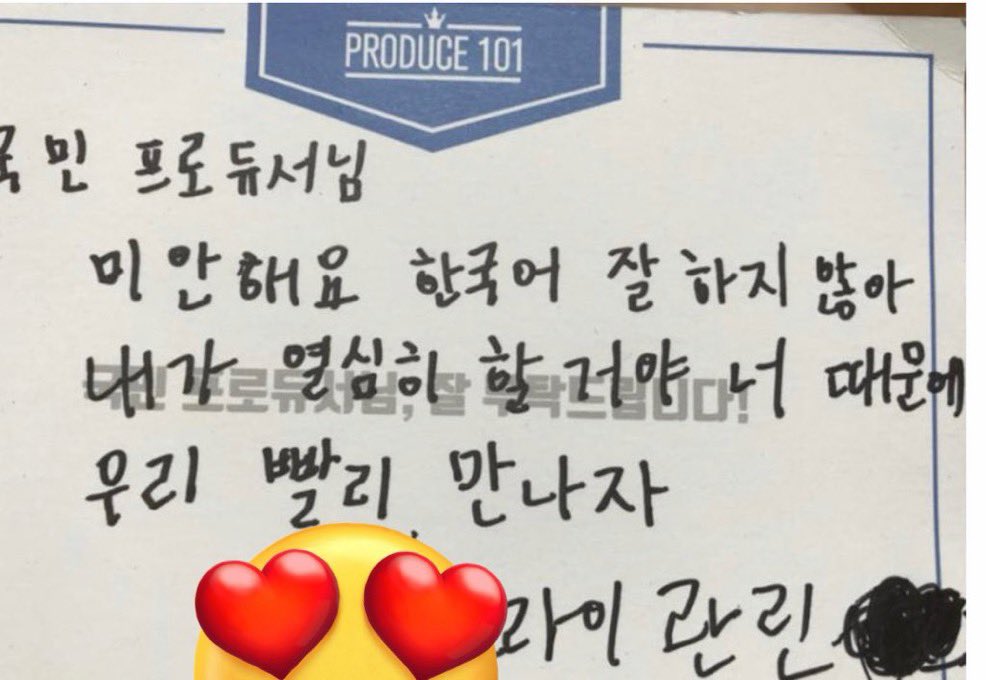 PRODUCE 101
국민 프로듀서님
미안해요 한국어 잘 하지 않아
내가 열심히 할 거야 너 때문에
국민 프로듀서님, 잘 부탁드립니다!
우리 빨리 만나자
라이관린